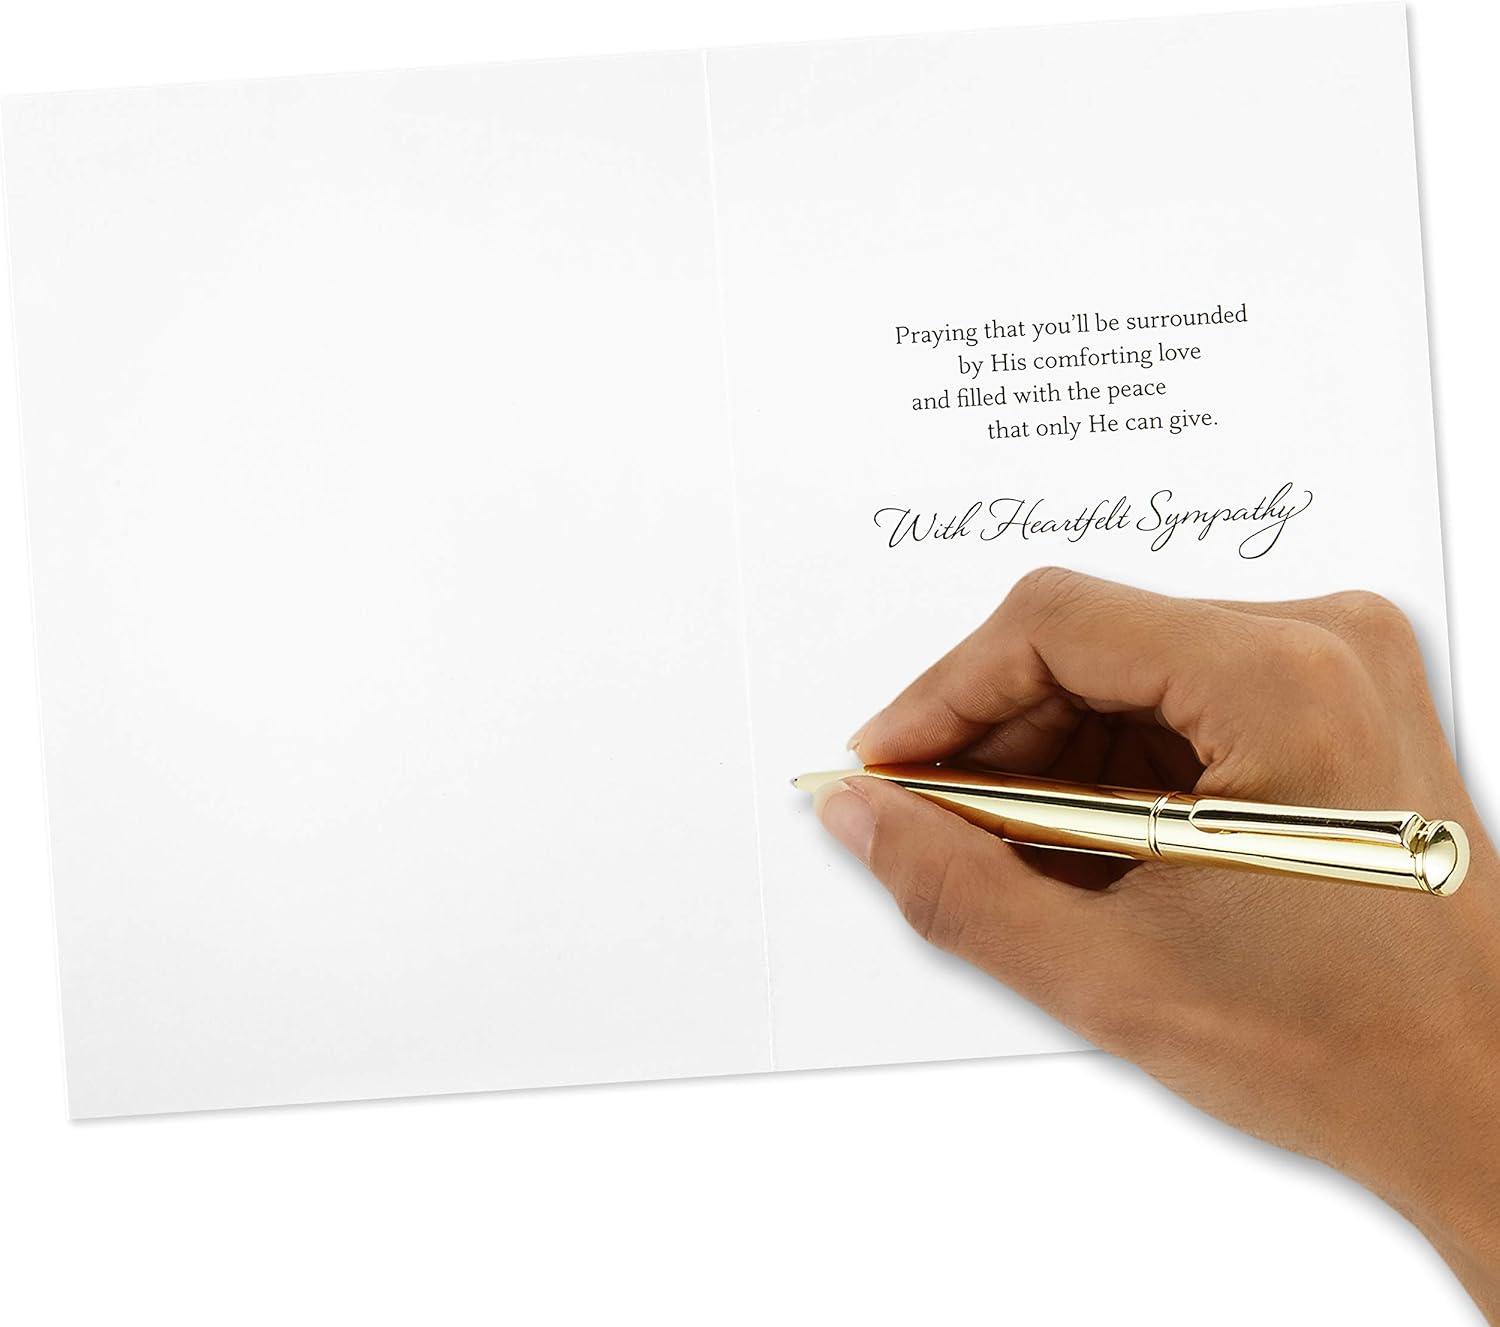 Praying that you’ll be surrounded
by His comforting love
and filled with the peace
that only He can give.
With Heartfelt Sympathy